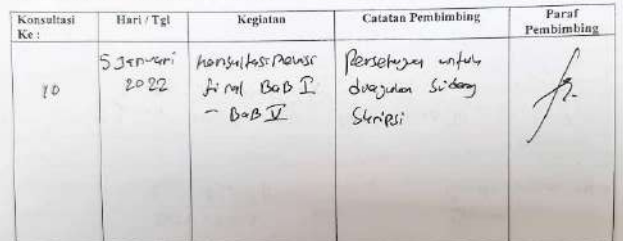 Konsultasi Ke :
Hari / Tgl
Kegiatan
Catatan Pembimbing
Paraf Pembimbing
10
5 Januari
2022
konsultasi revisi
final BAB I
- BAB V
Persetujuan untuk
diajukan Sidang
Skripsi